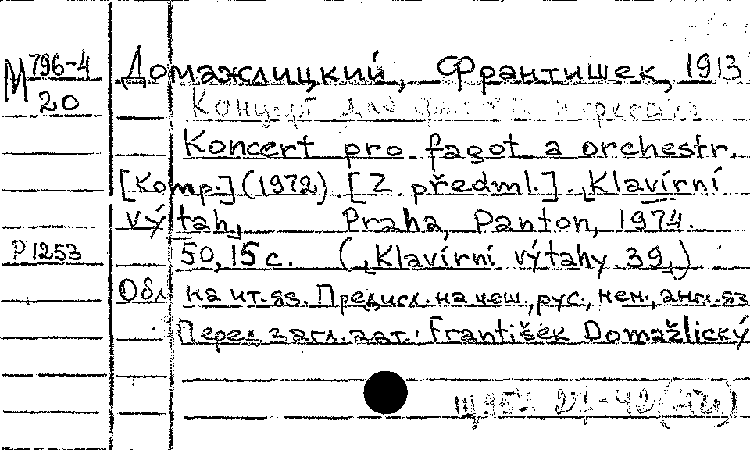 М 796-4
20
Домажлицкий, Франтишек, 1913
Концерт для
Koncert pro fagot a orchestr.
[Komp.] (1972). [Z předml.]. Klavírní
výtah. Praha, Panton, 1974.
Р1253
50, 15 с. („Klavírní výtahy 39„)
Обл. на ит. яз. Предисл. на чеш., рус., нем., англ. яз
Перед загл. авт.: František Domažlický